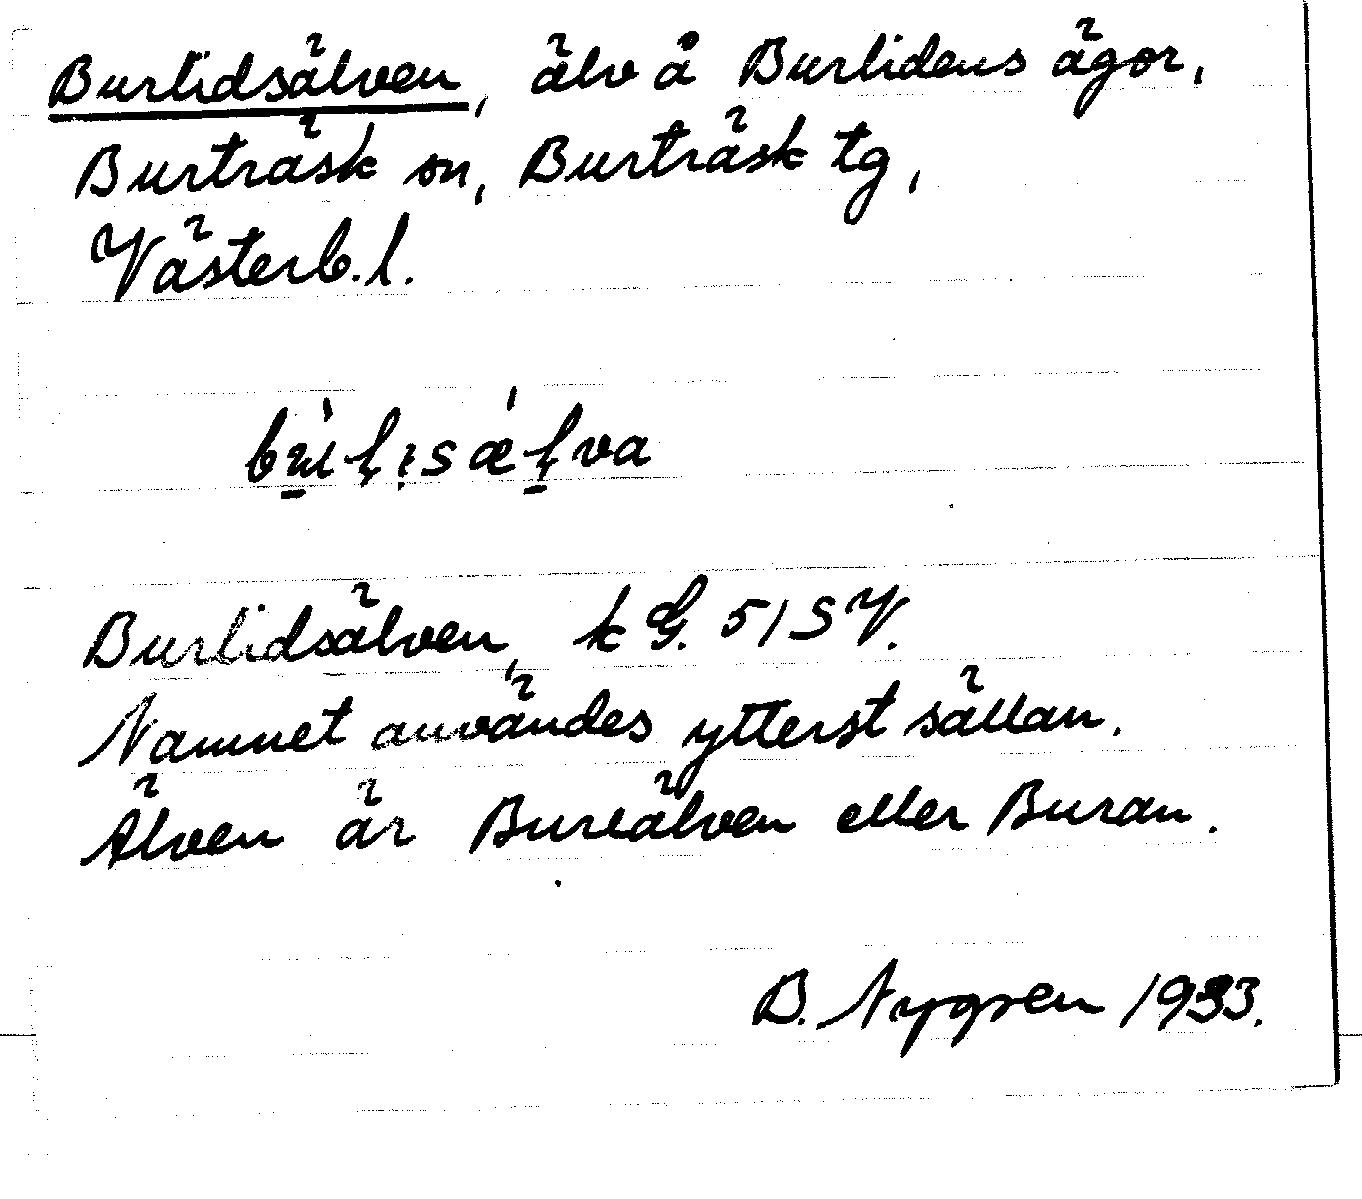 Burlidsälven, älv å Burlidens ägor,
Burträsk sn, Burträsk tg,
Västerb. l.
Burlidsälven, k G. 51 SV.
Namnet användes ytterst sällan.
Älven är Bureälven eller Buran.
B. Nygren 1933.